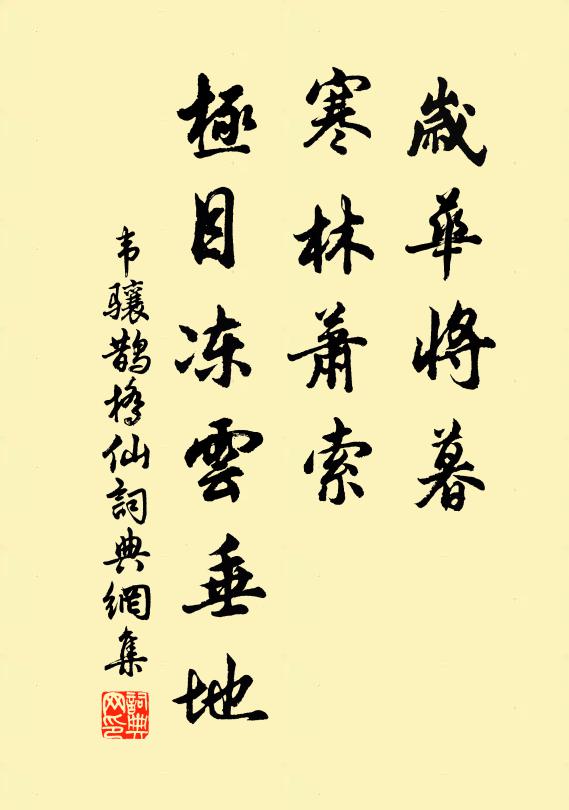 歲華將暮
寒林蕭索
極目冻雲垂地
韦骧鹊橋仙詞典網集
詞典网印